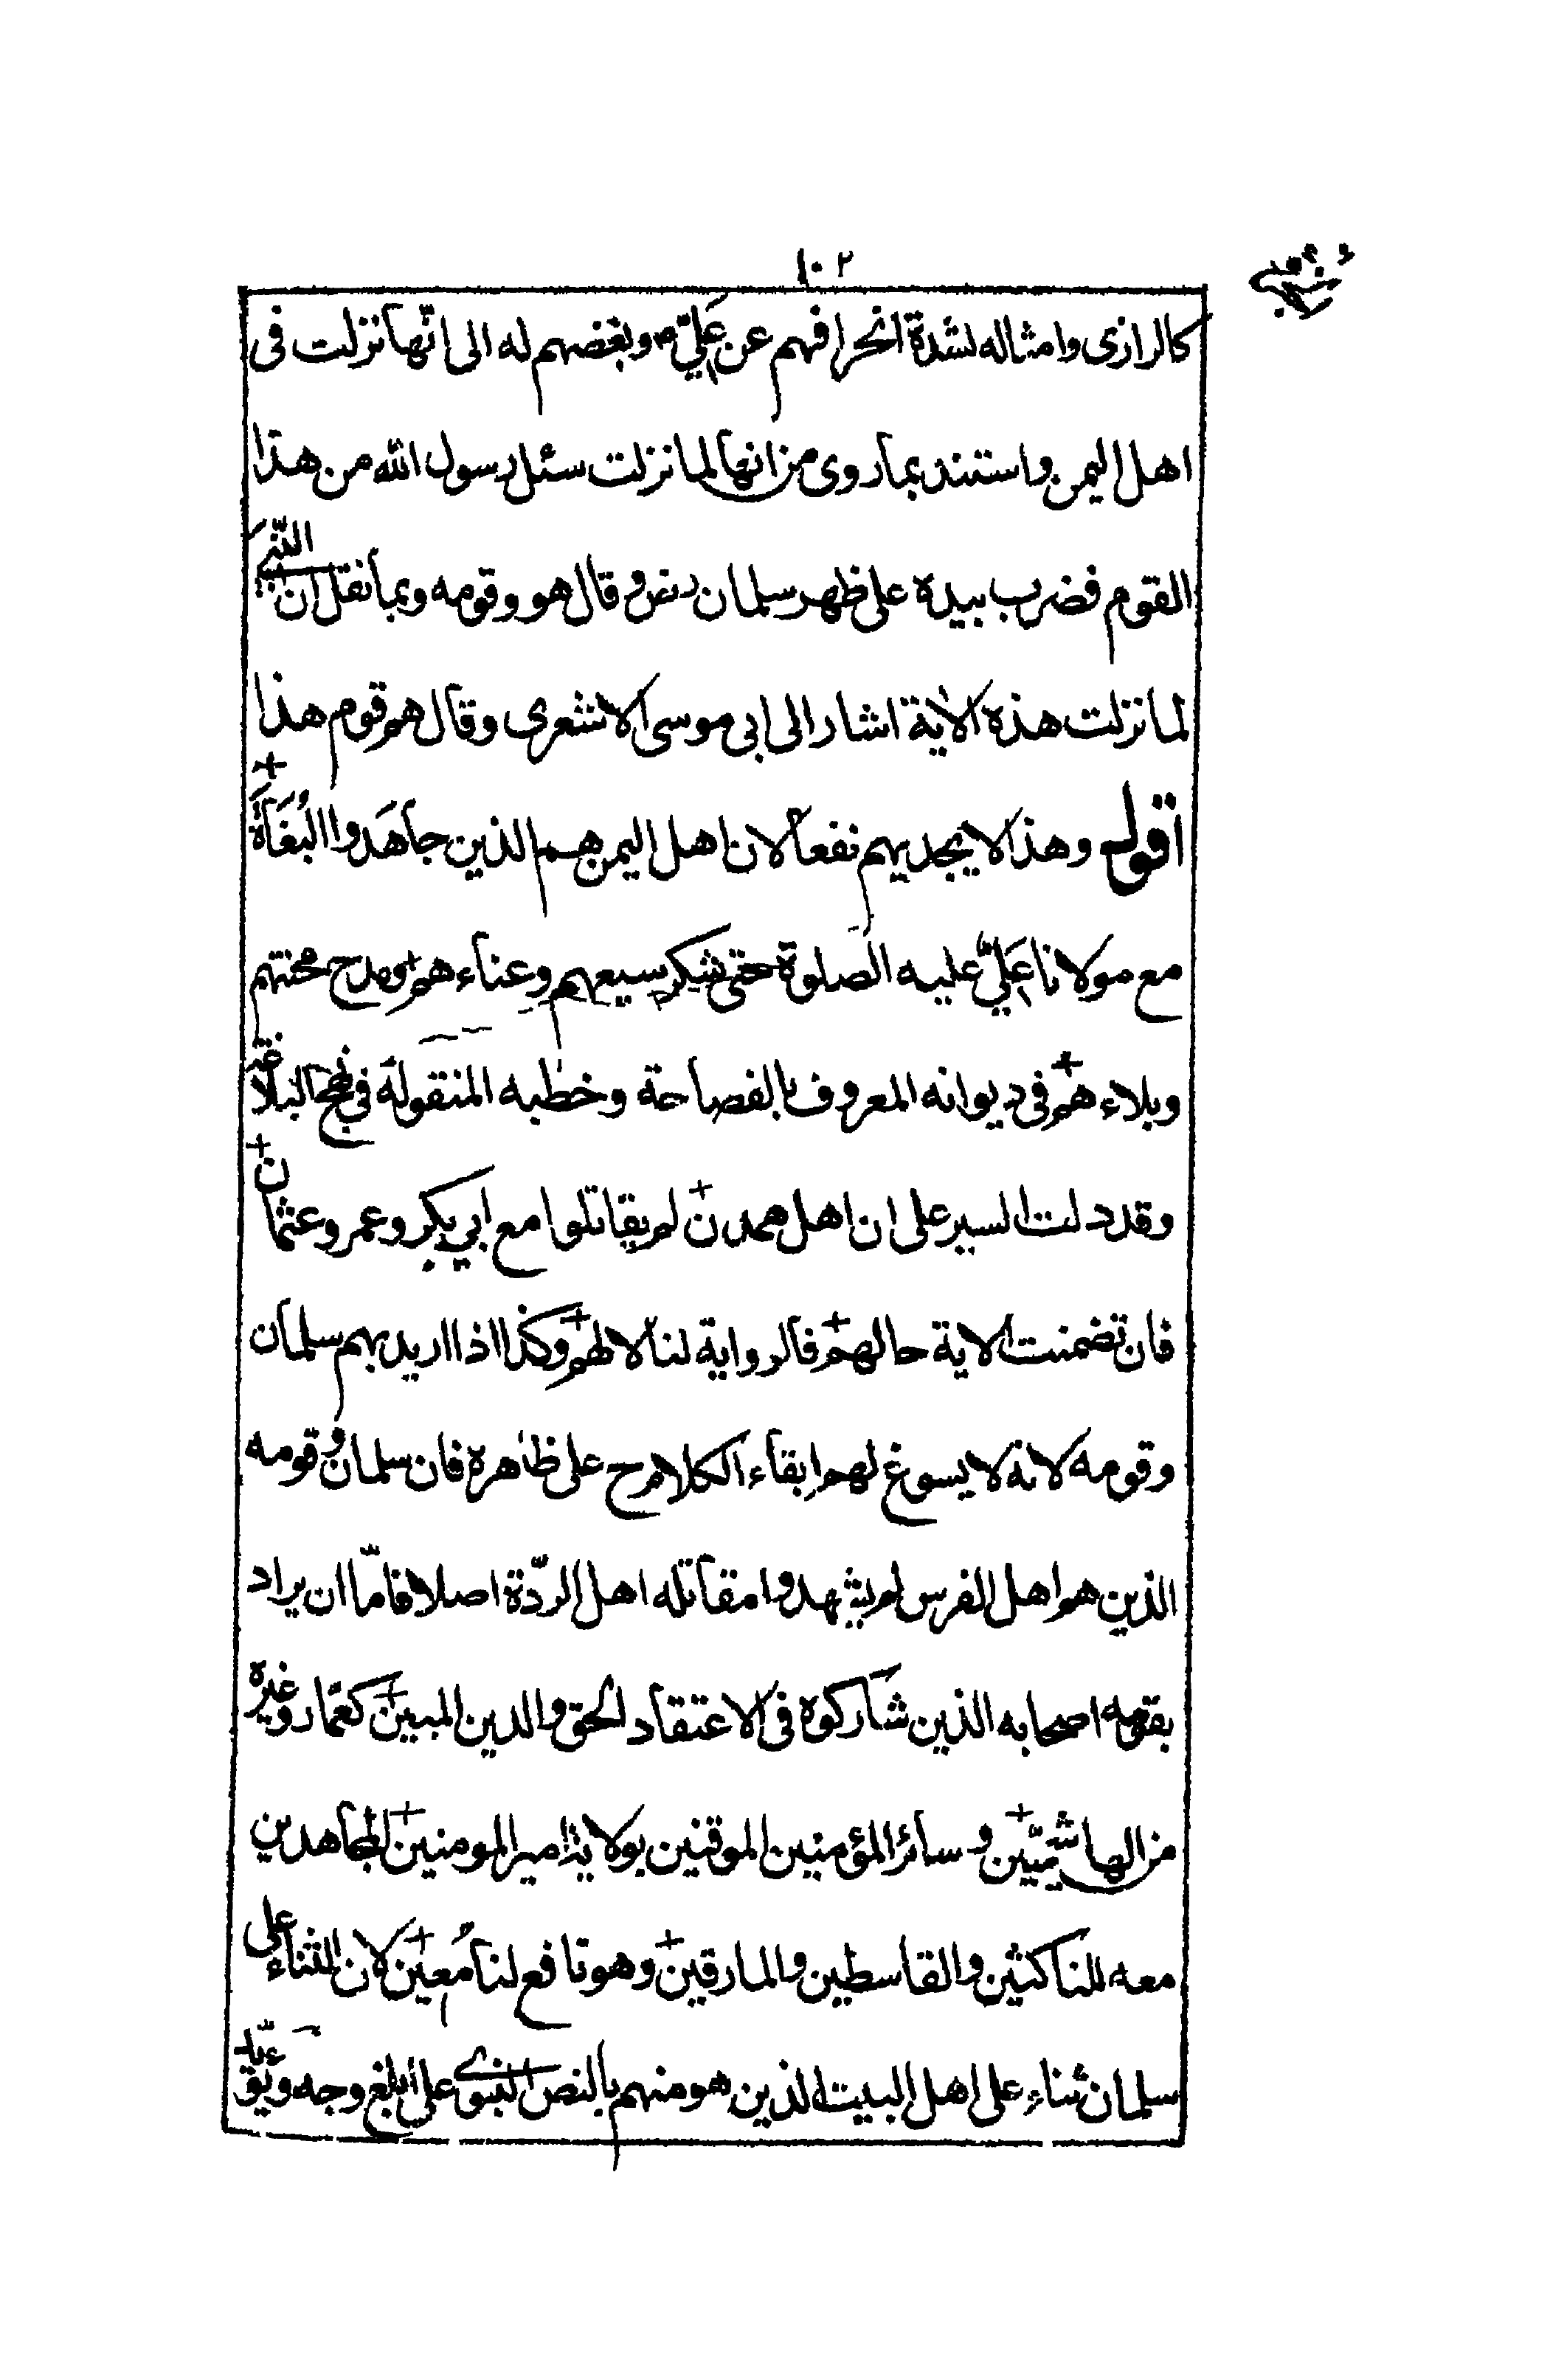 ١٠٢
كالرازى وامثاله لشدة انحرافهم عن عَلِيّ ؑ وبغضهم له الى انّها نزلت فى
اهل اليمن واستند بما روى من انها لما نزلت سئل رسول الله من هذا
القوم فضرب بيده على ظهر سلمان رض وقال هو وقومه وبما نقل ان النّبى
لما نزلت هذه الاية اشار الى ابى موسى الاشعرى وقال هم قوم هذا
اقول وهذا لا يجديهم نفعا لان اهل اليمن هم الذين جاهَدوا البُغَاةَ
مع مولانا عَلِيّ عليه الصلوة حتى شكر سيعهم وعناءهم ومدح محنتهم
وبلاءهم فى ديوانه المعروف بالفصاحة وخطبه المنقولة فى نهج البلاغة
وقد دلت السير على ان اهل همدن لم يقاتلوا مع ابي بكر وعمر وعثمان
فان تضمنت الاية حالهم فالرواية لنا لا لهم وكذا اذا اريد بهم سلمان
وقومه لانه لا يسوغ لهم ابقاء الكلام ح على ظاهره فان سلمان وقومه
الذين هم اهل الفرس لم يشهدوا مقاتله اهل الردّة اصلا فامّا ان يراد
بقومه اصحابه الذين شاركوه فى الاعتقاد الحق والدين المبين كعمّار وغيره
من الهاشميّين وسائر المؤمنين الموقنين بولاية امير المومنين المجاهدين
معه للناكثين والقاسطين والمارقين وهو نافع لنا مُعين لان الثناء على
سلمان ثناء على اهل البيت الذين هو منهم بالنص النبوى على ابلغ وجه